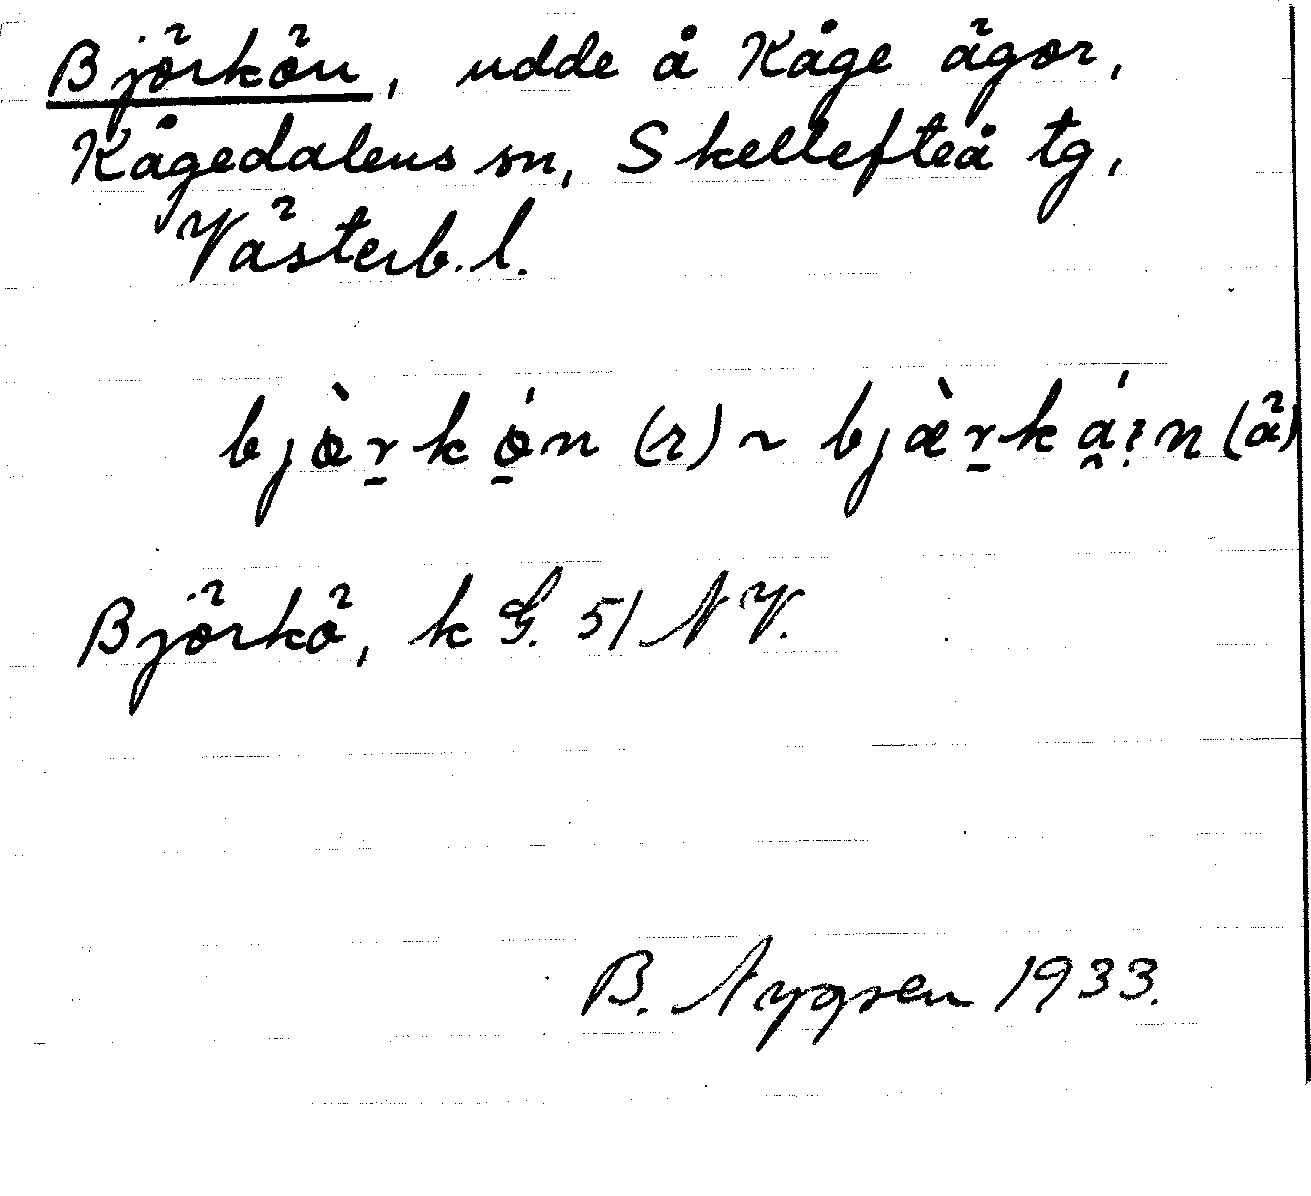 Björkön, udde å Kåge ägor,
Kågedalens sn, Skellefteå tg,
Västerb. l.
bjò̱ṟkó̱n (r) ~ bjæ̀ṟká̯i̯n (ä)
Björkö, k G. 51 N V.
B. Nygren 1933.